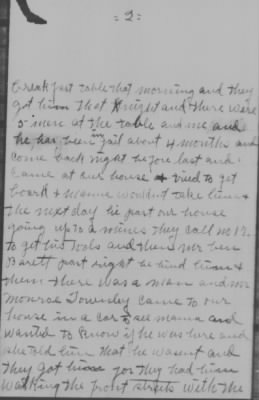 = 2 =
break fast table that morning and they
got him that night and there were
5 men at the table and me and
he has been in jail about 4 months and
come back night before last and
came at our house & tried to get
board & mama wouldnt take him &
the next day he past our house
going up to a mines they call no 12
to get his tools and then mr ben
Barett past right be hind him &
them there was a man and mr
monroe Townsley came to our
house in a car to see mama and
wanted to know if he was here and
she told him that he wasent and
they got him for they had him
walking the front streets with the